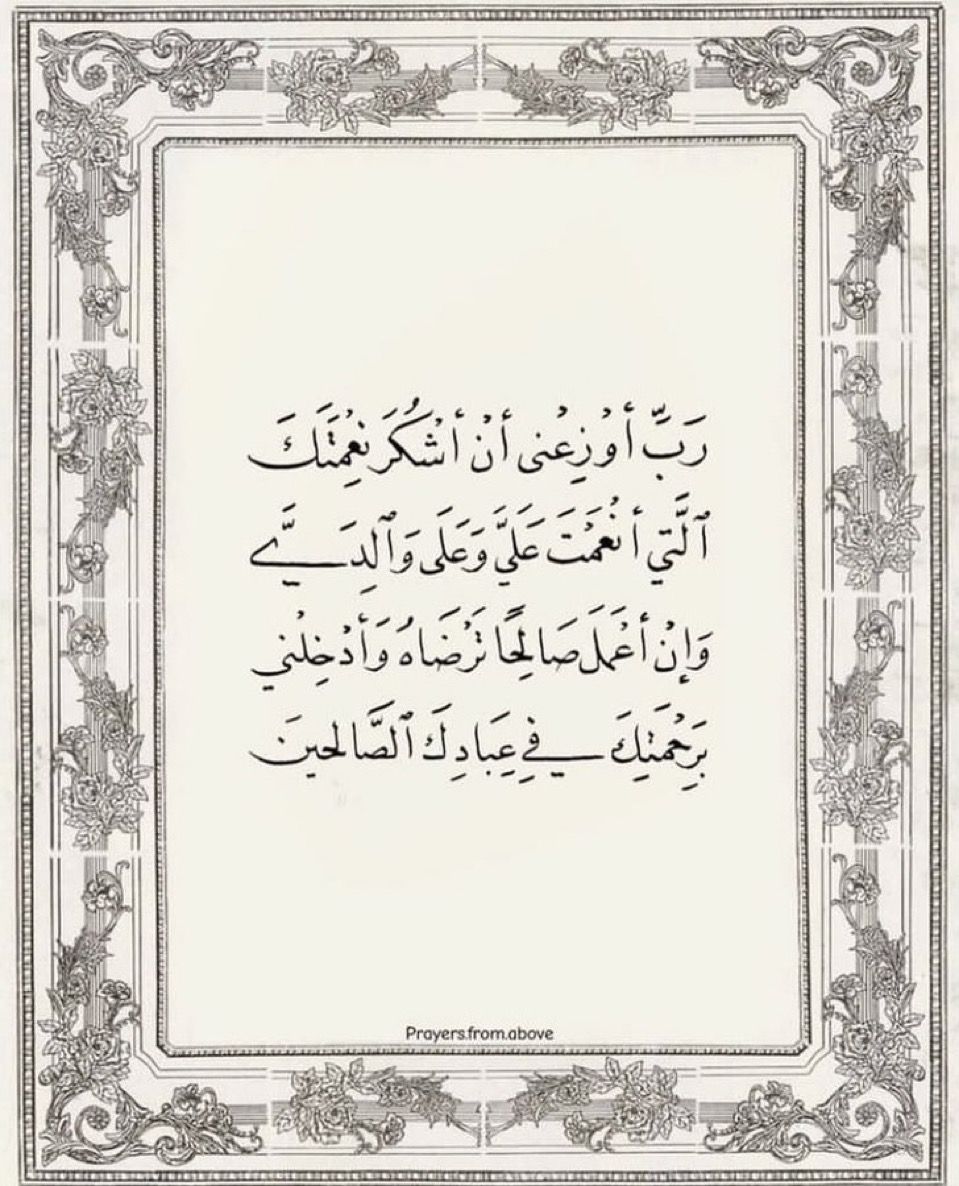 رَبِّ أَوْزِعْنى أَنْ أَشْكُرَ نِعْمَتَكَ
ٱلَّتي أَنْعَمْتَ عَلَيَّ وَعَلَى وَٱلِدَيَّ
وَإِنْ أَعْمَلَ صَالِحًا تَرْضَاهُ وَأَدْخِلْني
بِرَحْمَتِكَ فِي عِبَادِكَ ٱلصَّالحينَ
Prayers.from.above